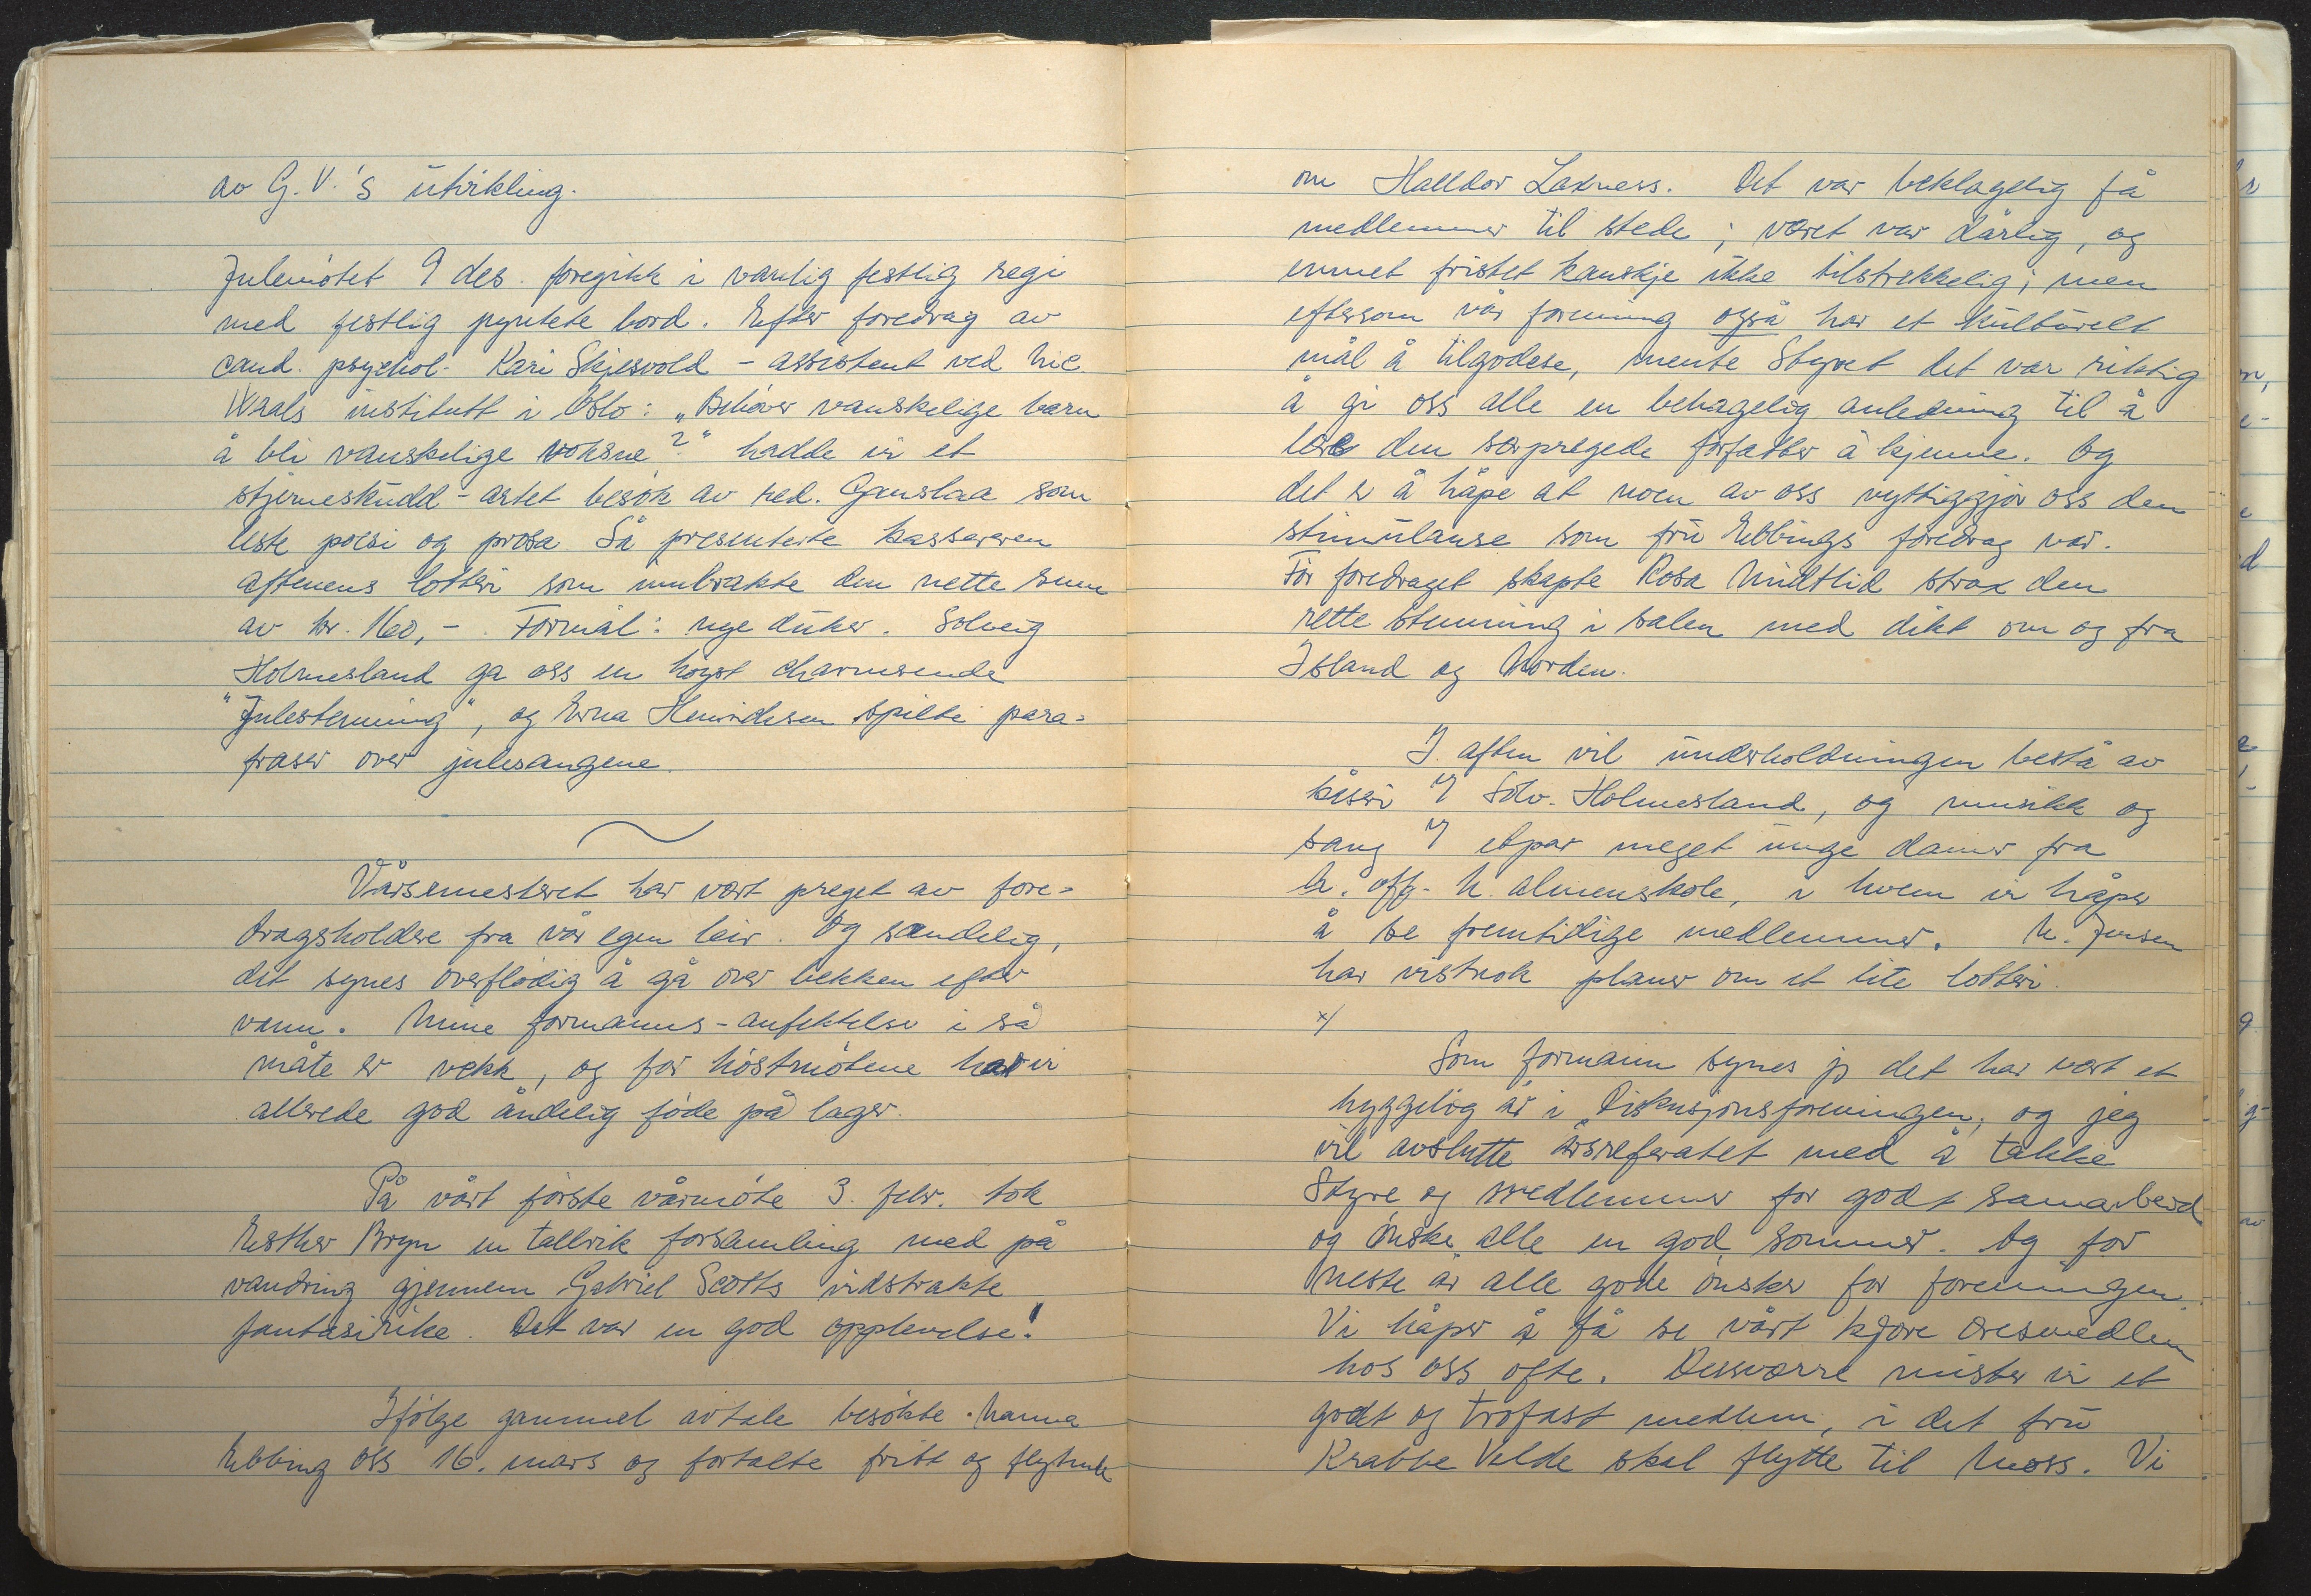 av G. V.'s utvikling.
Julemötet 9 des. foregikk i vanlig festlig regi
med festlig pyntete bord. Efter foredrag av
cand. psychol. Kari Skjesvold - assistent ved Nic
Waals institutt i Oslo: „Behöver vanskelige barn
å bli vanskelige voksne?" hadde vi et
stjerneskudd-artet besök av red. Ganslaa som
leste poesi og prosa. Så presenterte kassereren
aftenens lotteri som innbrakte den nette sum
av kr. 160,-. Formål: nye duker. Solveig
Holmesland ga oss en höyst charmerende
"Julestemning", og Erna Henrichsen spilte para=
fraser over julesangene.
Vårsemesteret har vært preget av fore=
dragsholdere fra vår egen leir. Og sandelig,
det synes overflödig å gå over bekken efter
vann. Mine formanns-anfektelser i så
måte er vekk, og for höstmötene har vi
allerede god åndelig föde på lager.
På vårt förste vårmöte 3. febr. tok
Esther Bryn en tallrik forsamling med på
vandring gjennem Gabriel Scotts vidstrakte
fantasirike. Det var en god opplevelse!
Ifölge gammel avtale besökte Nanna
Ebbing oss 16. mars og fortalte fritt og flytende
om Halldor Laxness. Det var beklagelig få
medlemmer til stede; været var dårlig, og
emnet fristet kanskje ikke tilstrekkelig; men
eftersom vår forening også har et kulturelt
mål å tilgodese, mente Styret det var riktig
å gi oss alle en behagelig anledning til å
lære den særpregede forfatter å kjenne. Og
det er å håpe at noen av oss nyttiggjör oss den
stimulanse som fru Ebbings foredrag var.
För foredraget skapte Rosa Midtlid strax den
rette stemning i salen med dikt om og fra
Island og Norden.
I aften vil underholdningen bestå av
kåseri v/ Solv. Holmesland, og musikk og
sang v/ etpar meget unge damer fra
h. off. h. almenskole, i hvem vi håper
å se fremtidige medlemmer. M. Jensen
har vistnok planer om et lite lotteri.
x/
Som formann synes jg det har vært et
hyggelig år i Diskusjonsforeningen, og jeg
vil avslutte årsreferatet med å takke
Styre og medlemmer for godt samarbeid
og önske alle en god sommer. Og for
neste år alle gode önsker for foreningen.
Vi håper å få se vårt kjære æresmedlem
hos oss ofte. Dessværre mister vi et
godt og trofast medlem, i det fru
Krabbe Velde skal flytte til Moss. Vi